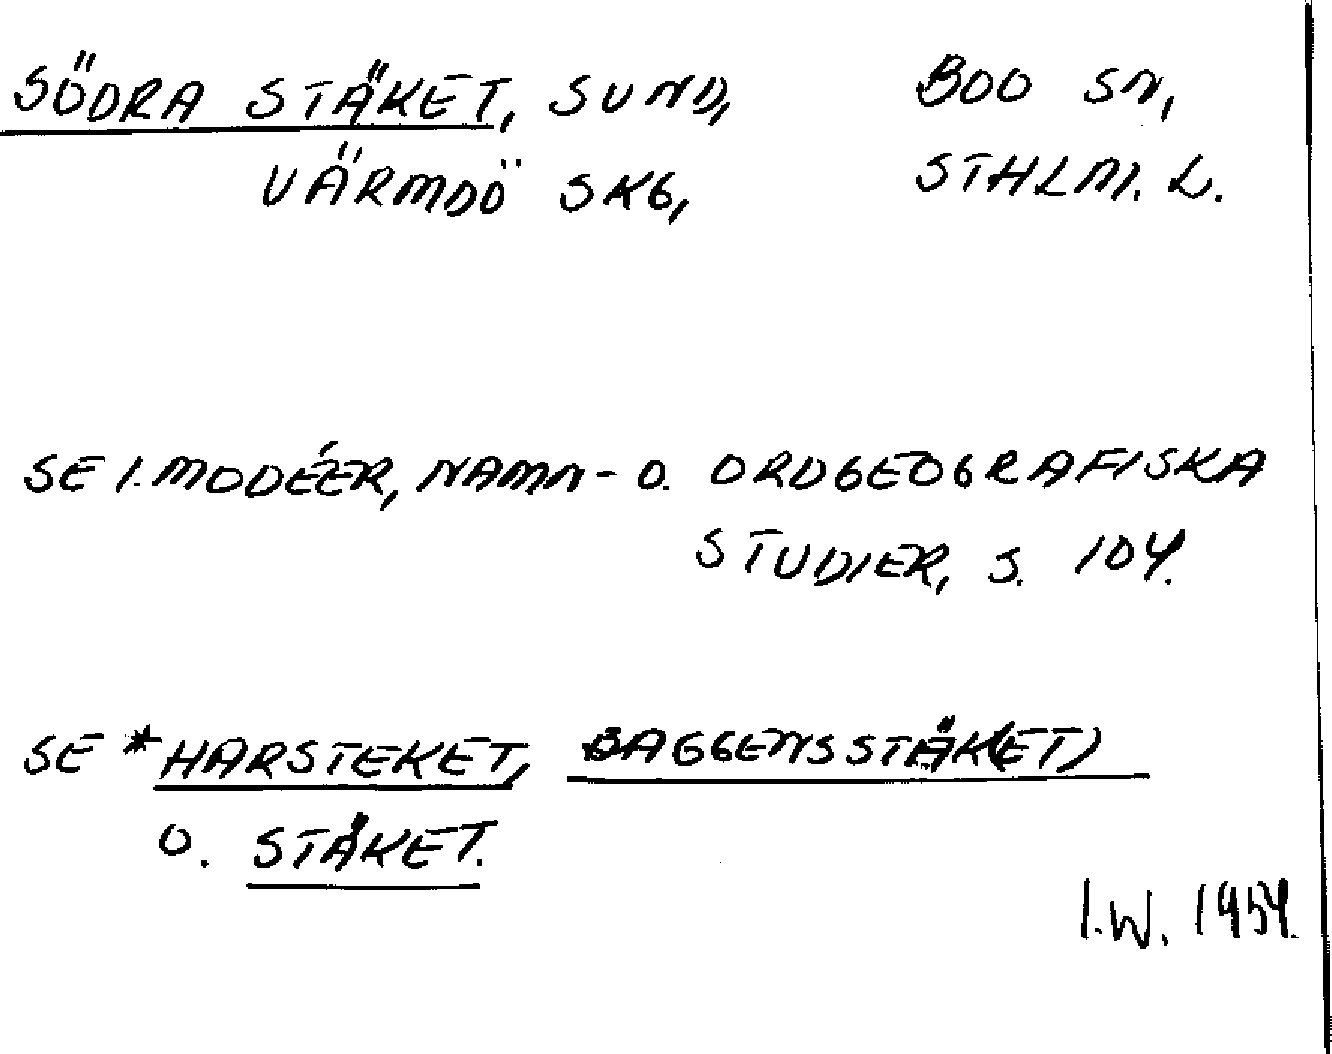 SÖDRA STÄKET, SUND, BOO SN,
VÄRMDÖ SKG, STHLM. L.
SE I. MODÉER, NAMN- O. ORDGEOGRAFISKA
STUDIER, S. 104.
SE *HARSTEKET, BAGGENSSTÄK(ET)
O. STÄKET.
I.W. 1954.